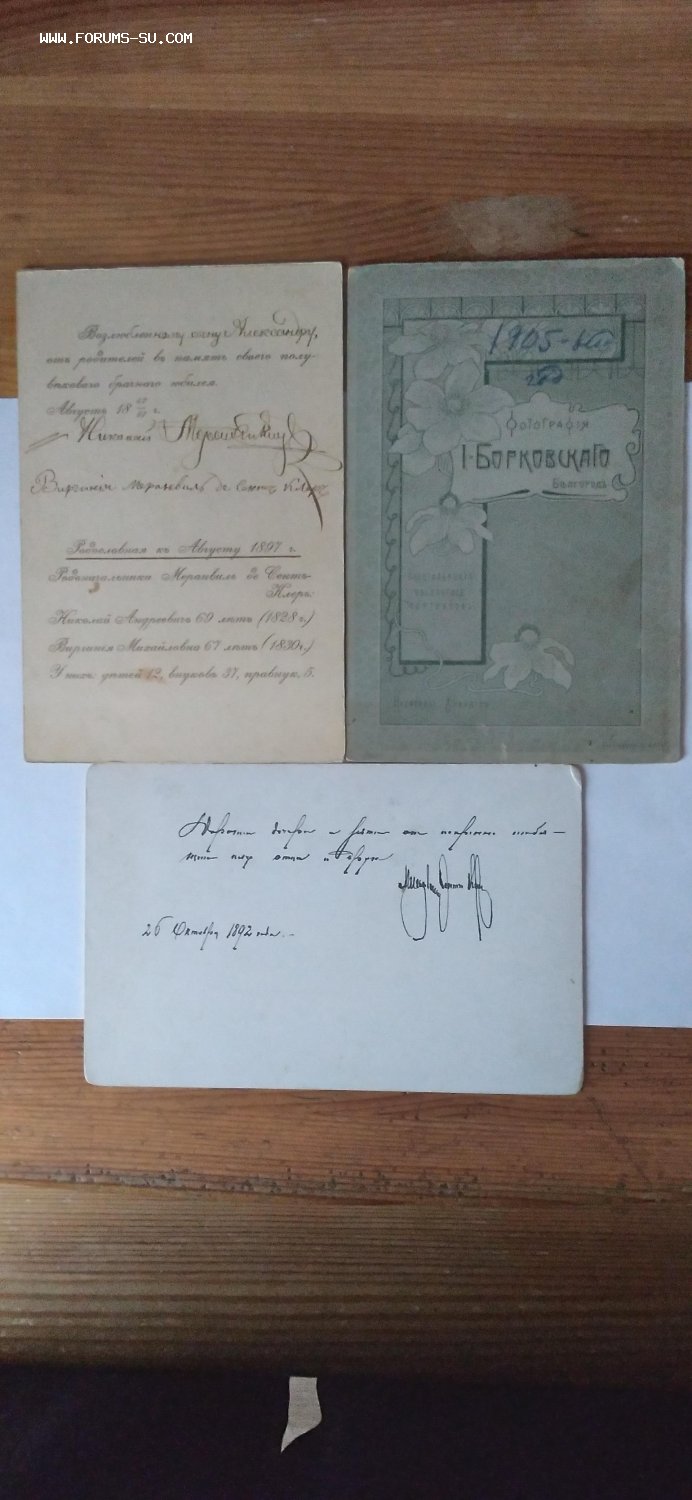 WWW.FORUMS-SU.COM
Возлюбленному сыну Александру,
отъ родителей въ память своего полу-
вековаго брачнаго юбилея.
Августъ 18 47/97 г.
Николай
Виргинія Меранвиль де Сентъ Клеръ
Родословная къ Августу 1897 г.
Родоначальники Меранвиль де Сентъ-
Клеръ:
Николай Андреевичъ 69 лѣтъ (1828 г.)
Виргинія Михайловна 67 лѣтъ (1830 г.)
У нихъ: дѣтей 12, внуковъ 37, правнук. 5.
1905-
годъ
Фотографія
І. Борковскаго
Бѣлгородъ
дочери и зятю от
отца и
26 Октября 1892 года.